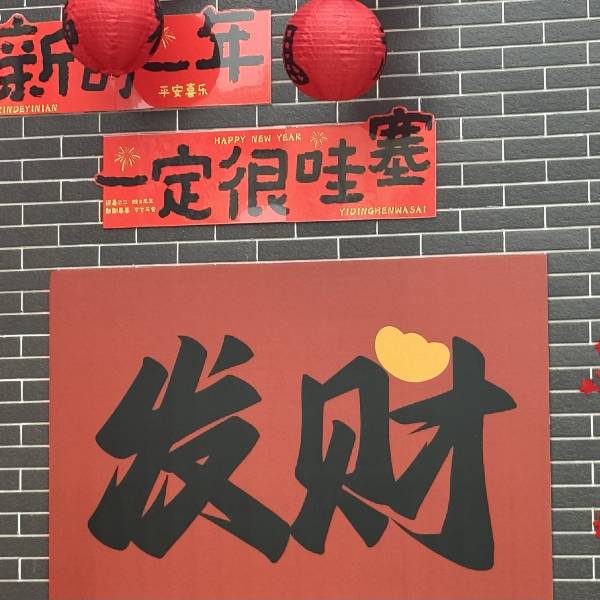 新的一年
平安喜乐
XINDEYINIAN
HAPPY NEW YEAR
一定很哇塞
YIDINGHENWASAI
发财